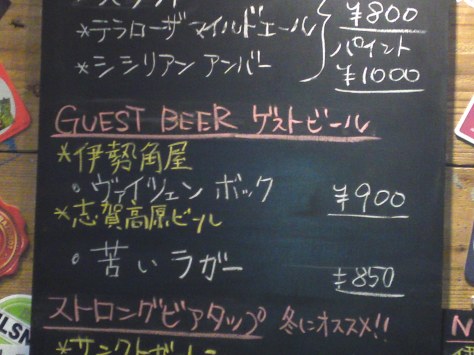 *テラローザ マイルドエール
¥800
パイント
*シシリアン アンバー
¥1000
GUEST BEER ゲストビール
*伊勢角屋
・ヴァイツェン ボック
¥900
*志賀高原ビール
・苦いラガー
¥850
ストロングビアタップ 冬にオススメ!!